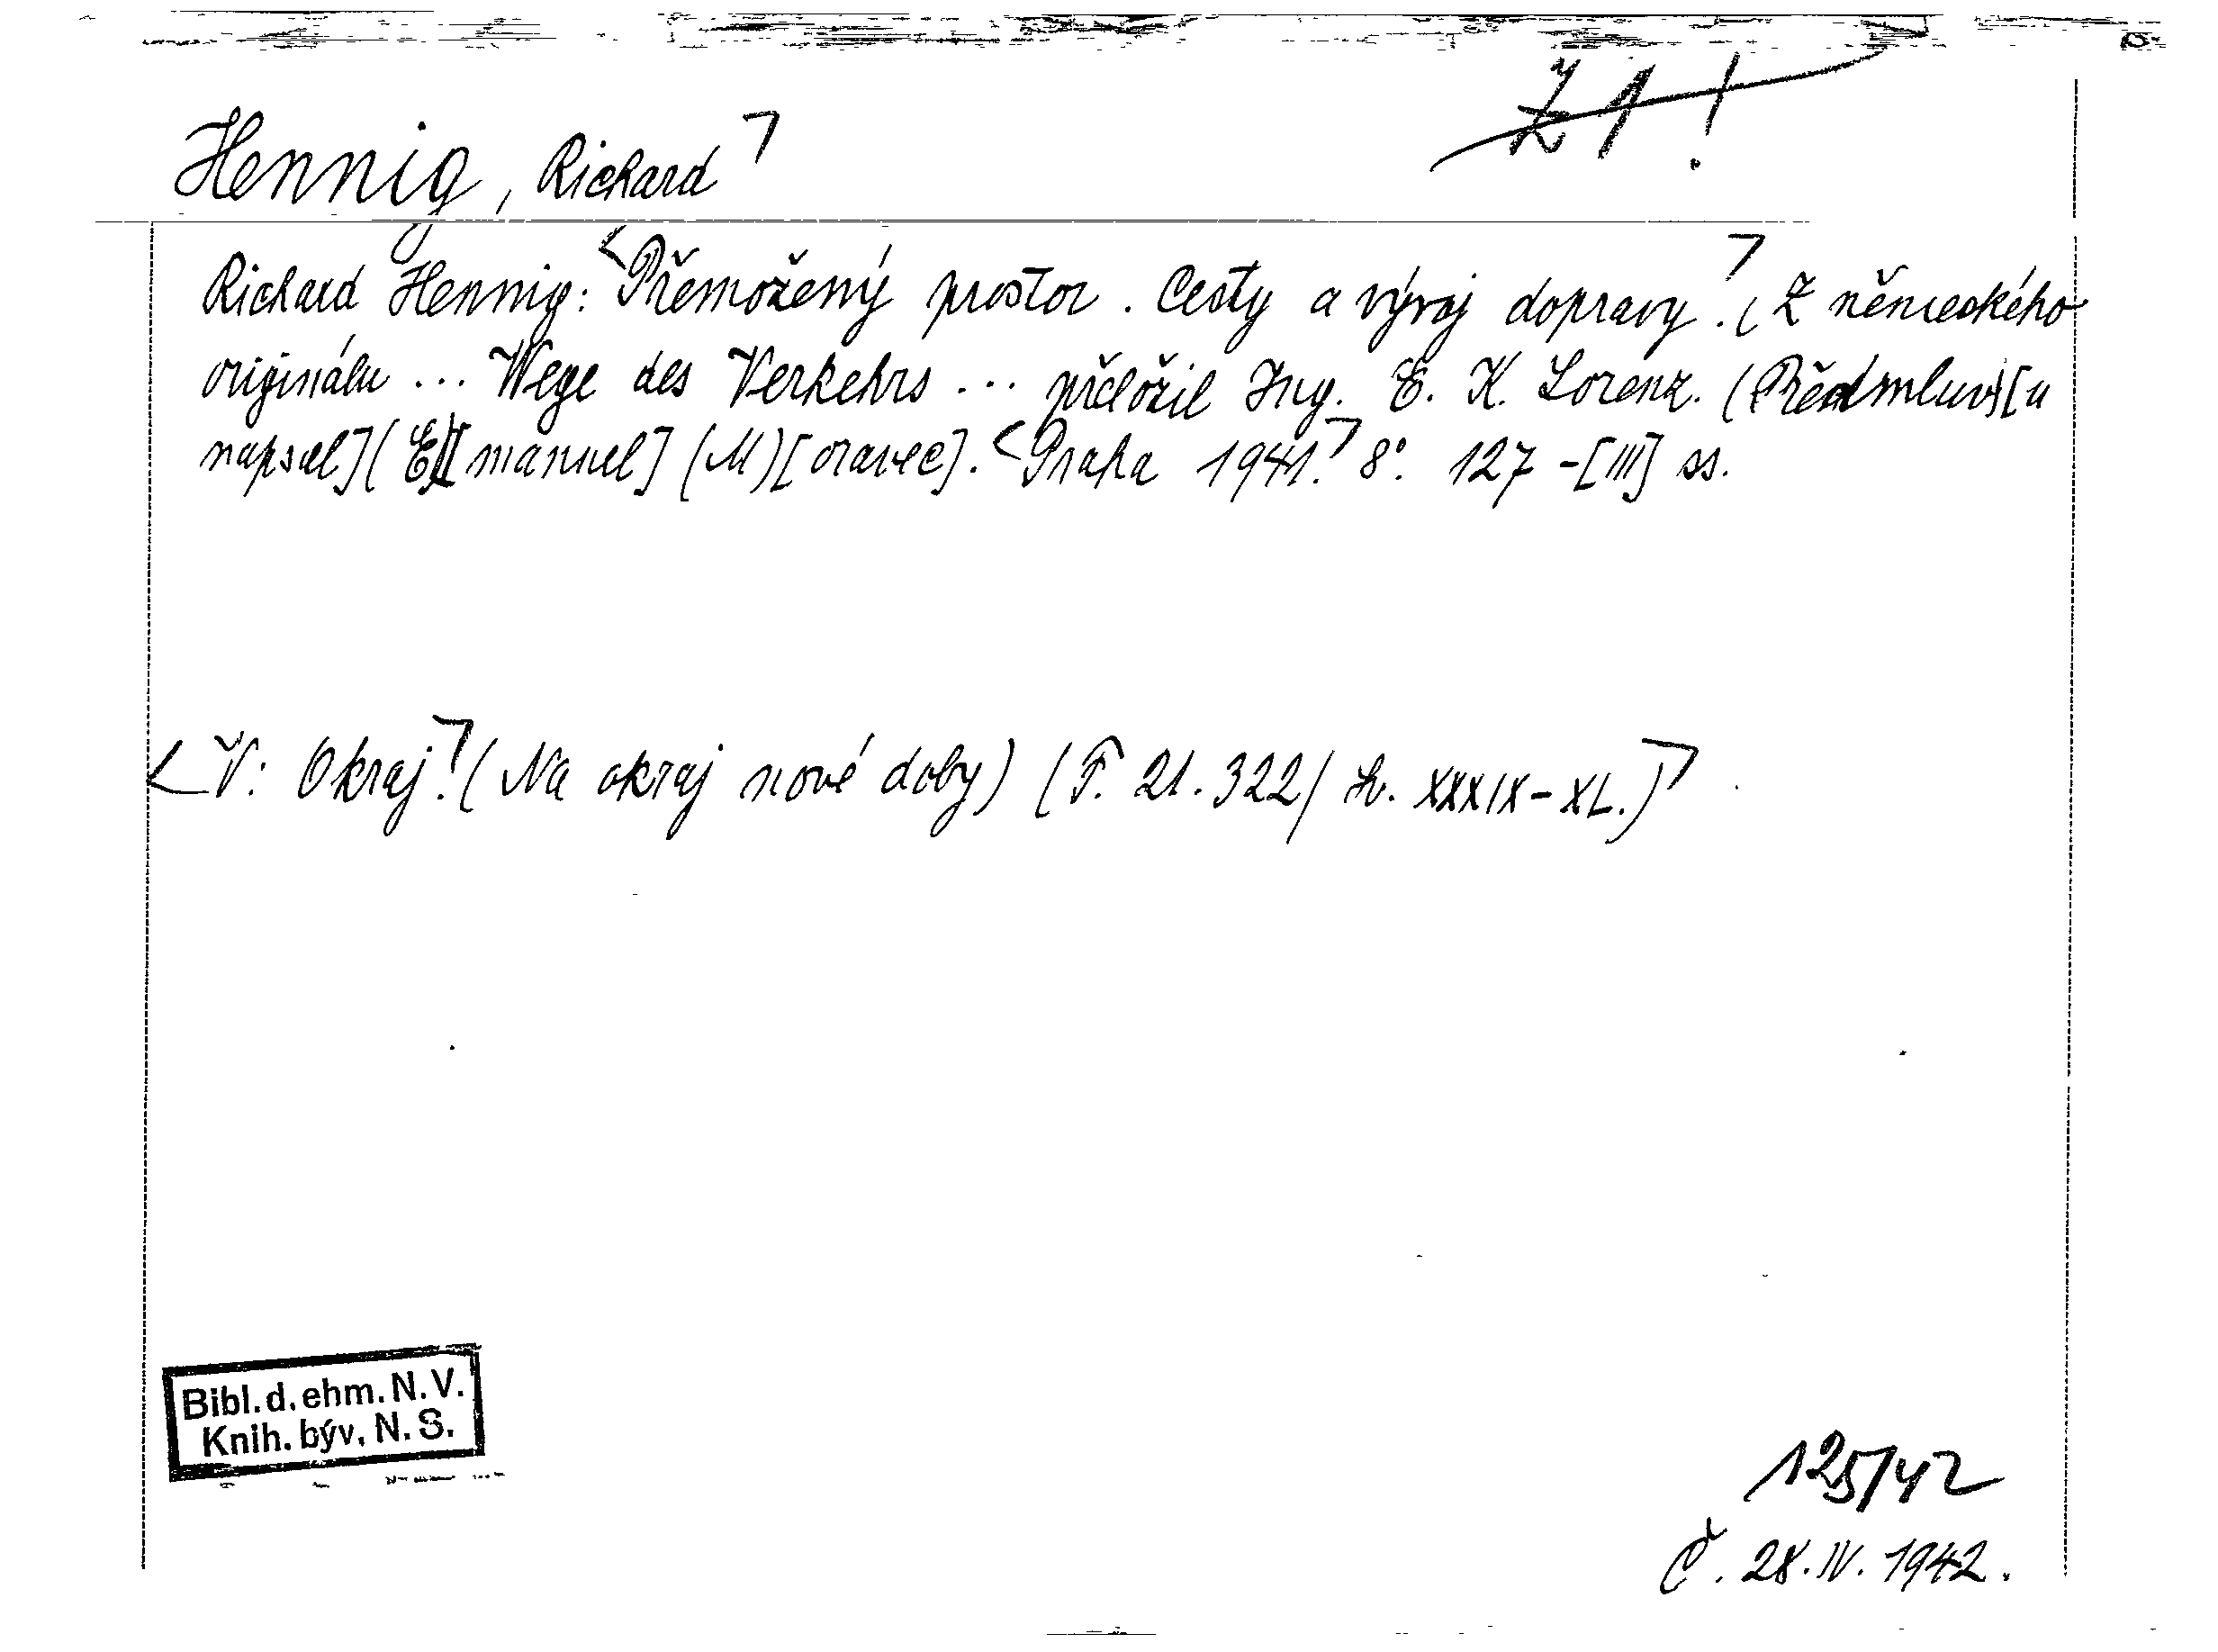 Z 1!
Hennig, Richard
Richard Hennig: Přemožený prostor. Cesty a vývoj dopravy. (Z německého
originálu ... Wege des Verkehrs ... přeložil Ing. E. K. Lorenz. (Předmluv)[u
napsal](E)[manuel](M)[oravec]. Praha 1941. 8°. 127-[III] ss.
V: Okraj. (Na okraj nové doby) (F. 21.322/ XXXIX-XL.)
Bibl. d. ehm. N. V.
Knih. býv. N. S.
125/42
Č. 28. IV. 1942.